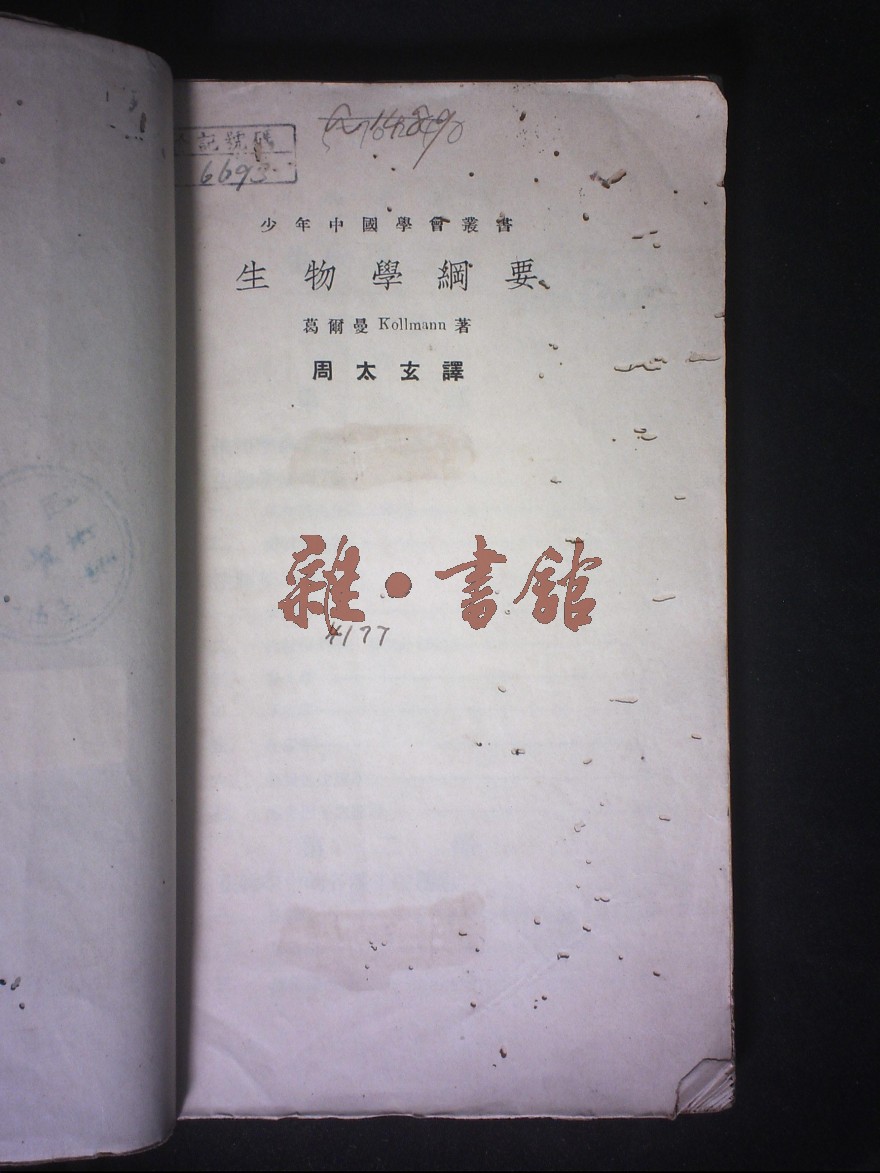 記號碼
6693
少年中國學會叢書
生物學綱要
葛爾曼 Kollmann 著
周太玄譯
雜·書館
4177